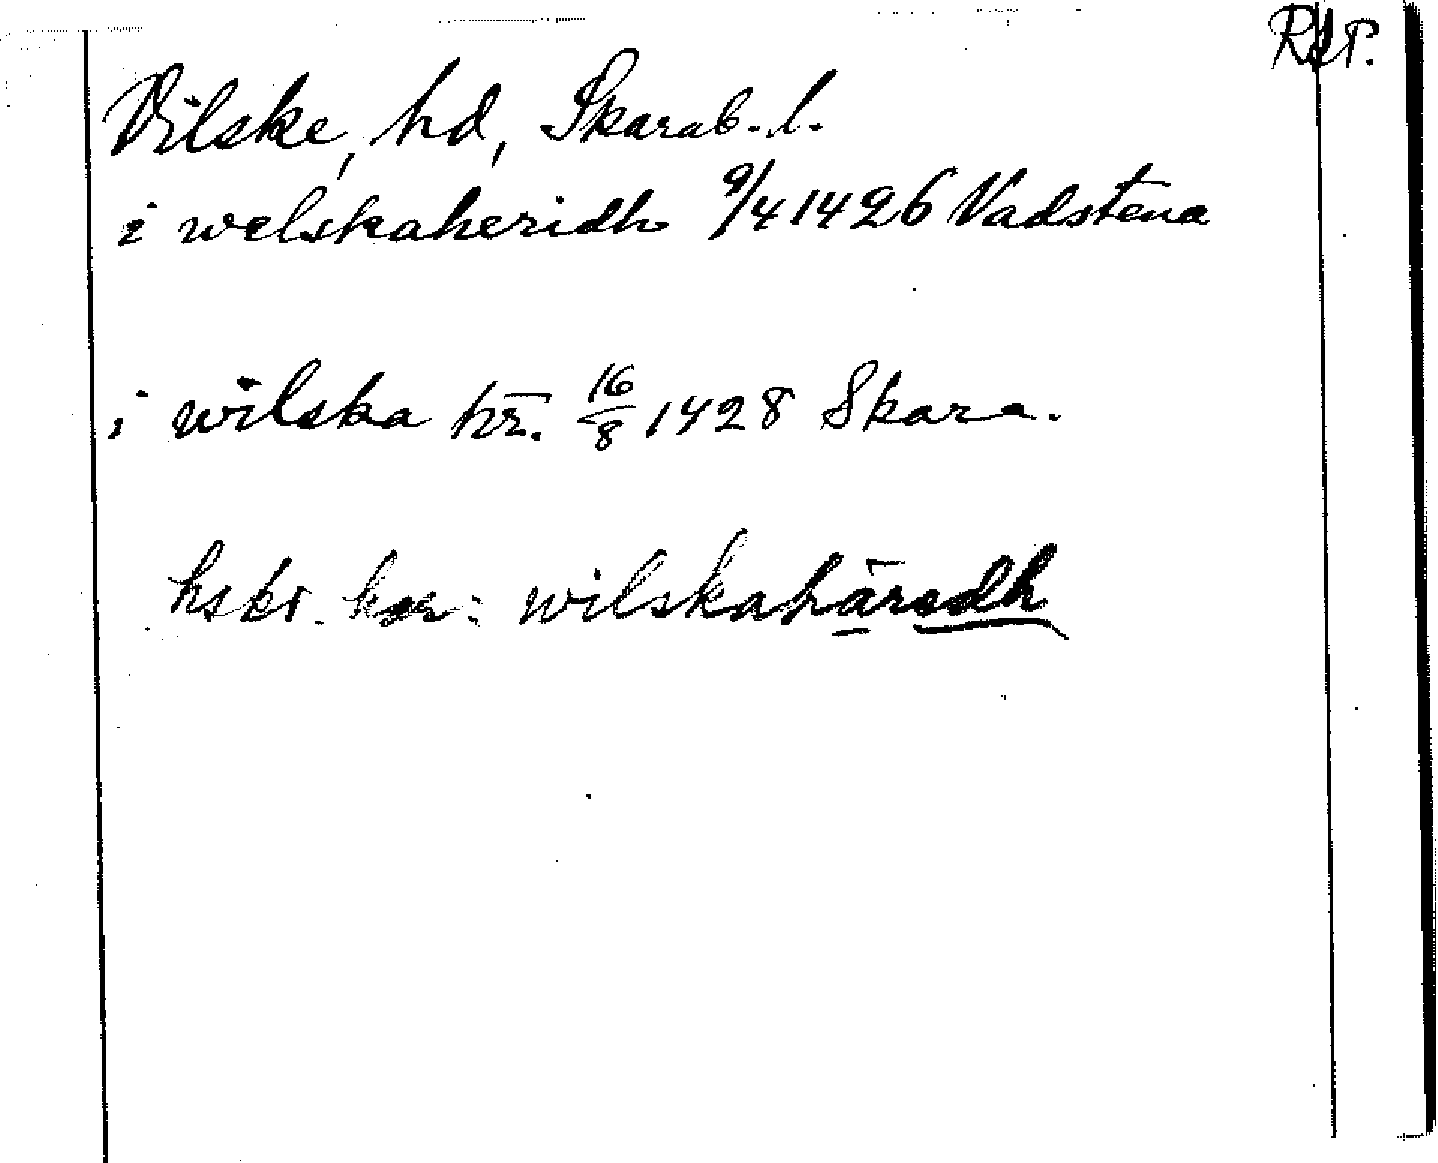 RAP.
Vilske, hd, Skarab. l.
i welskaheridh 9/4 1426 Vadstena
i wilska hr. 16/8 1428 Skara.
hskr. har: wilskahäredh